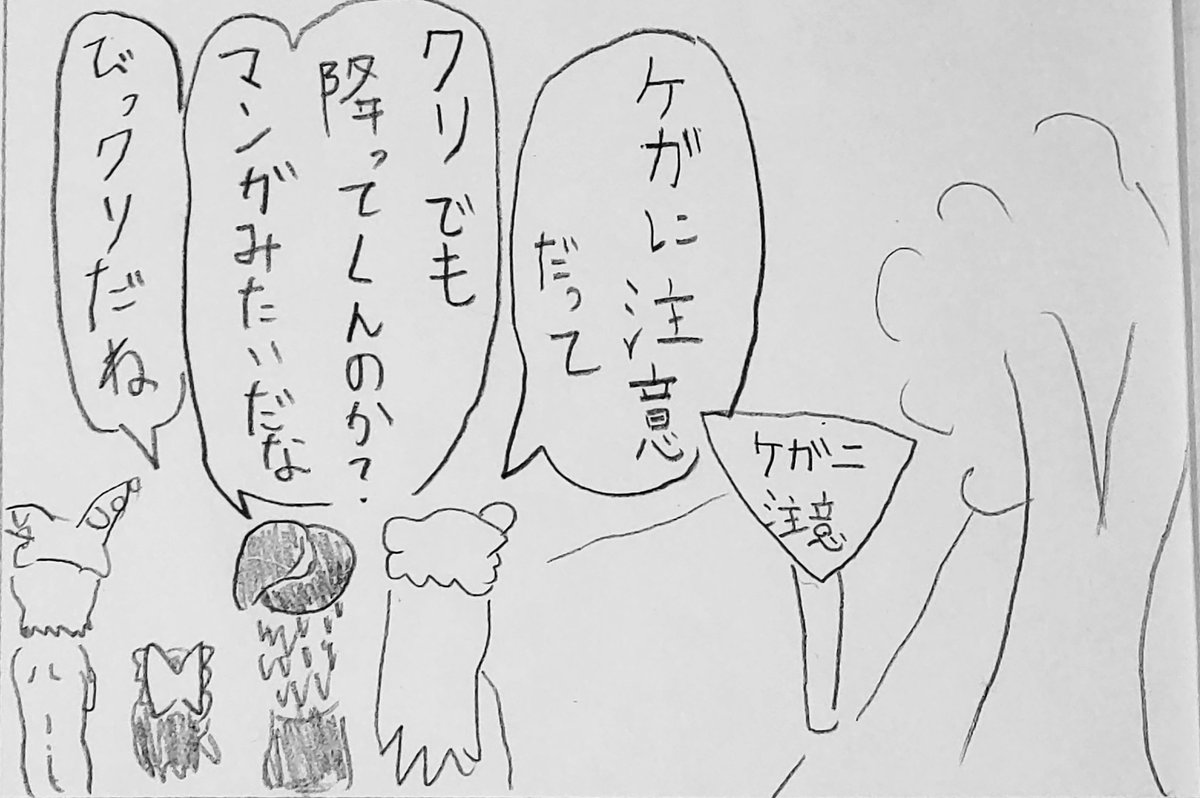 ケガに注意
だって
クリでも
降ってくんのか?
マンガみたいだな
びっクリだね
ケガニ
注意